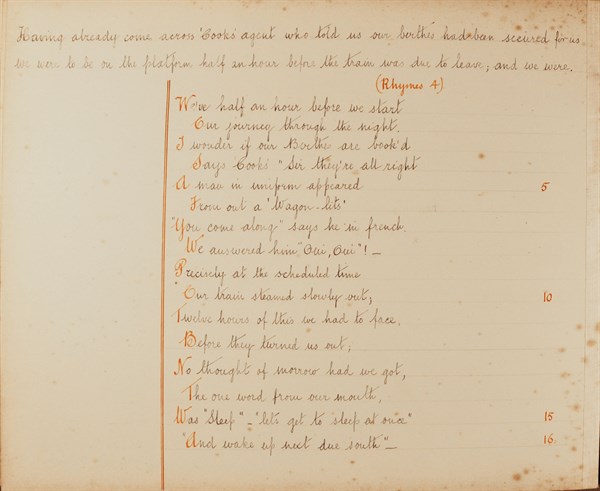 Having already come across 'Cook's agent who told us our berthes had been secured for us
we were to be on the platform half an hour before the train was due to leave; and we were.
(Rhymes 4)
We've half an hour before we start
Our journey through the night.
I wonder if our Berthes are book'd
Says 'Cook's' "Sir they're all right
A man in uniform appeared 5
From out a 'Wagon-lits'
"You come along" says he in french.
We answered him, "Oui, Oui"! —
Precisely at the scheduled time
Our train steamed slowly out; 10
Twelve hours of this we had to face,
Before they turned us out;
No thought of morrow had we got,
The one word from our mouth,
Was "Sleep" - "lets get to sleep at once" 15
"And wake up next due south" — 16.